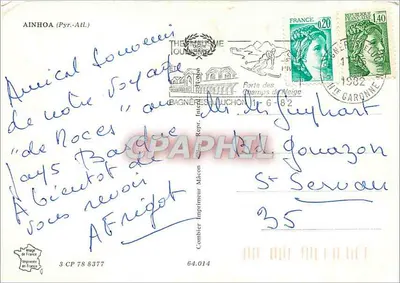 AINHOA (Pyr.-Atl.)
Amical souvenir
de notre voyage
"de Noces" au
pays Basque
A bientôt de
vous revoir
AFrigot
Image
de France
3 CP 78 8377
64.014
Combier Imprimeur Mâcon
THERMALISME
TOURISME
Porte des
Champs de Neige
BAGNÈRES LUCHON
6-82
FRANCE
0,20
1,40
1982
Hte GARONNE
CPAPHIL
M. Mme Guyhart
Bd Gouazon
St Servan
35